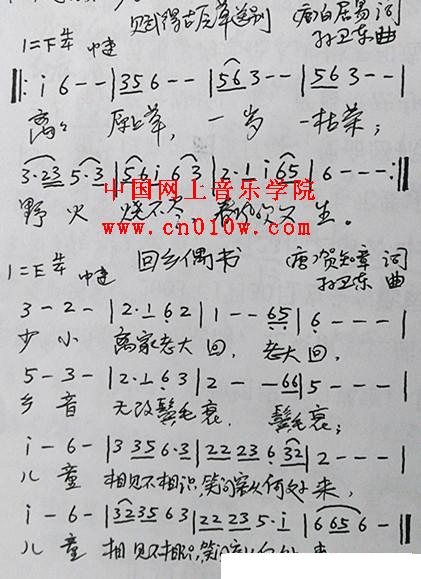 赋得古原草送别 唐白居易词
1=下羊 中速 孙卫东曲
‖: i 6 - - | 35 6 - - | 56 3 - - | 56 3 - - |
离离 原上草, 一岁 一枯荣;
3·23 5·3 | 56 i 6 3 | 2·1 i 65 | 6 - - - :‖
野火 烧不尽, 春风吹又生。
中国网上音乐学院
www.cn010w.com
回乡偶书 唐贺知章 词
1=下羊 中速 孙卫东 曲
3 - 2 - | 2·1 6 2 | 1 - - 65 | 6 - - - |
少 小 离家老大 回, 老大 回,
5 - 3 - | 2·1 6 3 | 2 - - 66 | 5 - - - |
乡 音 无改鬓毛 衰, 鬓毛 衰;
i - 6 - | 3 35 6·3 | 22 23 6 32 | 2 - - - |
儿 童 相见不相识,笑问客从何处 来,
i - 6 - | 323563 | 22 23 5·i | 6 65 6 - ‖
儿 童 相见不相识,笑问客从何处 来